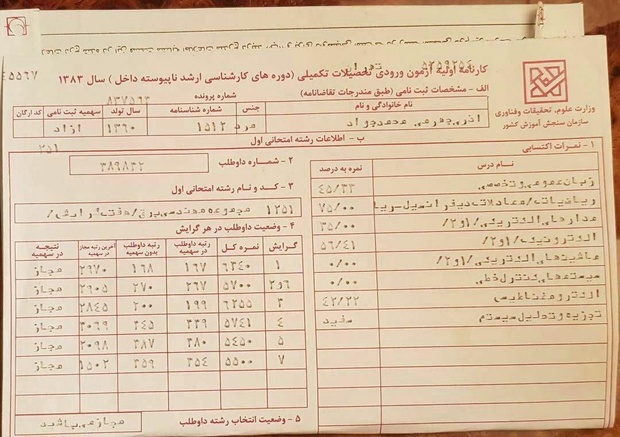 کارنامه اولیه آزمون ورودی تحصیلات تکمیلی (دوره های کارشناسی ارشد ناپیوسته داخل) سال ۱۳۸۳
۵۵۶۷
وزارت علوم، تحقیقات وفناوری
سازمان سنجش آموزش کشور
الف - مشخصات ثبت نامی (طبق مندرجات تقاضانامه)
شماره پرونده
۸۳۷۵۶۳
نام خانوادگی و نام
جنس
شماره شناسنامه
سال تولد
سهمیه ثبت نامی
کد ارگان
محمدجواد
مرد
۱۵۱۲
۱۳۶۰
آزاد
ب - اطلاعات رشته امتحانی اول
۲۵۱
۱ - نمرات اکتسابی
نام درس
نمره به درصد
زبان عمومی و تخصصی
۴۵/۳۳
ریاضیات/معادلات دیفرانسیل-ریا
۷۵/۰۰
مدارهای الکتریکی/۱و۲/
۳۵/۰۰
الکترونیک/۱و۲/
۵۶/۴۱
ماشینهای الکتریکی/۱و۲/
۰/۰۰
سیستمهای کنترل خطی
۰/۰۰
الکترومغناطیس
۴۲/۲۲
تجزیه و تحلیل سیستم
سفید
۲ - شماره داوطلب
۳۸۹۸۳۲
۳ - کد و نام رشته امتحانی اول
۱۲۵۱ مجموعه مهندسی برق/هفت گرایش/
۴ - وضعیت داوطلب در هر گرایش
گرایش
نمره کل
رتبه داوطلب در سهمیه
رتبه داوطلب بدون سهمیه
آخرین رتبه مجاز در سهمیه
نتیجه در سهمیه
۱ ۶۳۴۰ ۱۶۷ ۱۶۸ ۲۹۷۰ مجاز
۲و۶ ۵۷۰۰ ۲۶۷ ۲۷۰ ۲۹۰۵ مجاز
۳ ۶۲۵۵ ۱۹۹ ۲۰۰ ۲۸۴۵ مجاز
۴ ۵۷۴۱ ۳۳۹ ۳۴۵ ۳۰۶۹ مجاز
۵ ۵۴۵۰ ۳۸۰ ۳۸۷ ۲۰۹۸ مجاز
۷ ۵۵۰۰ ۳۵۴ ۳۵۹ ۱۵۰۲ مجاز
۵ - وضعیت انتخاب رشته داوطلب
مجاز می باشید